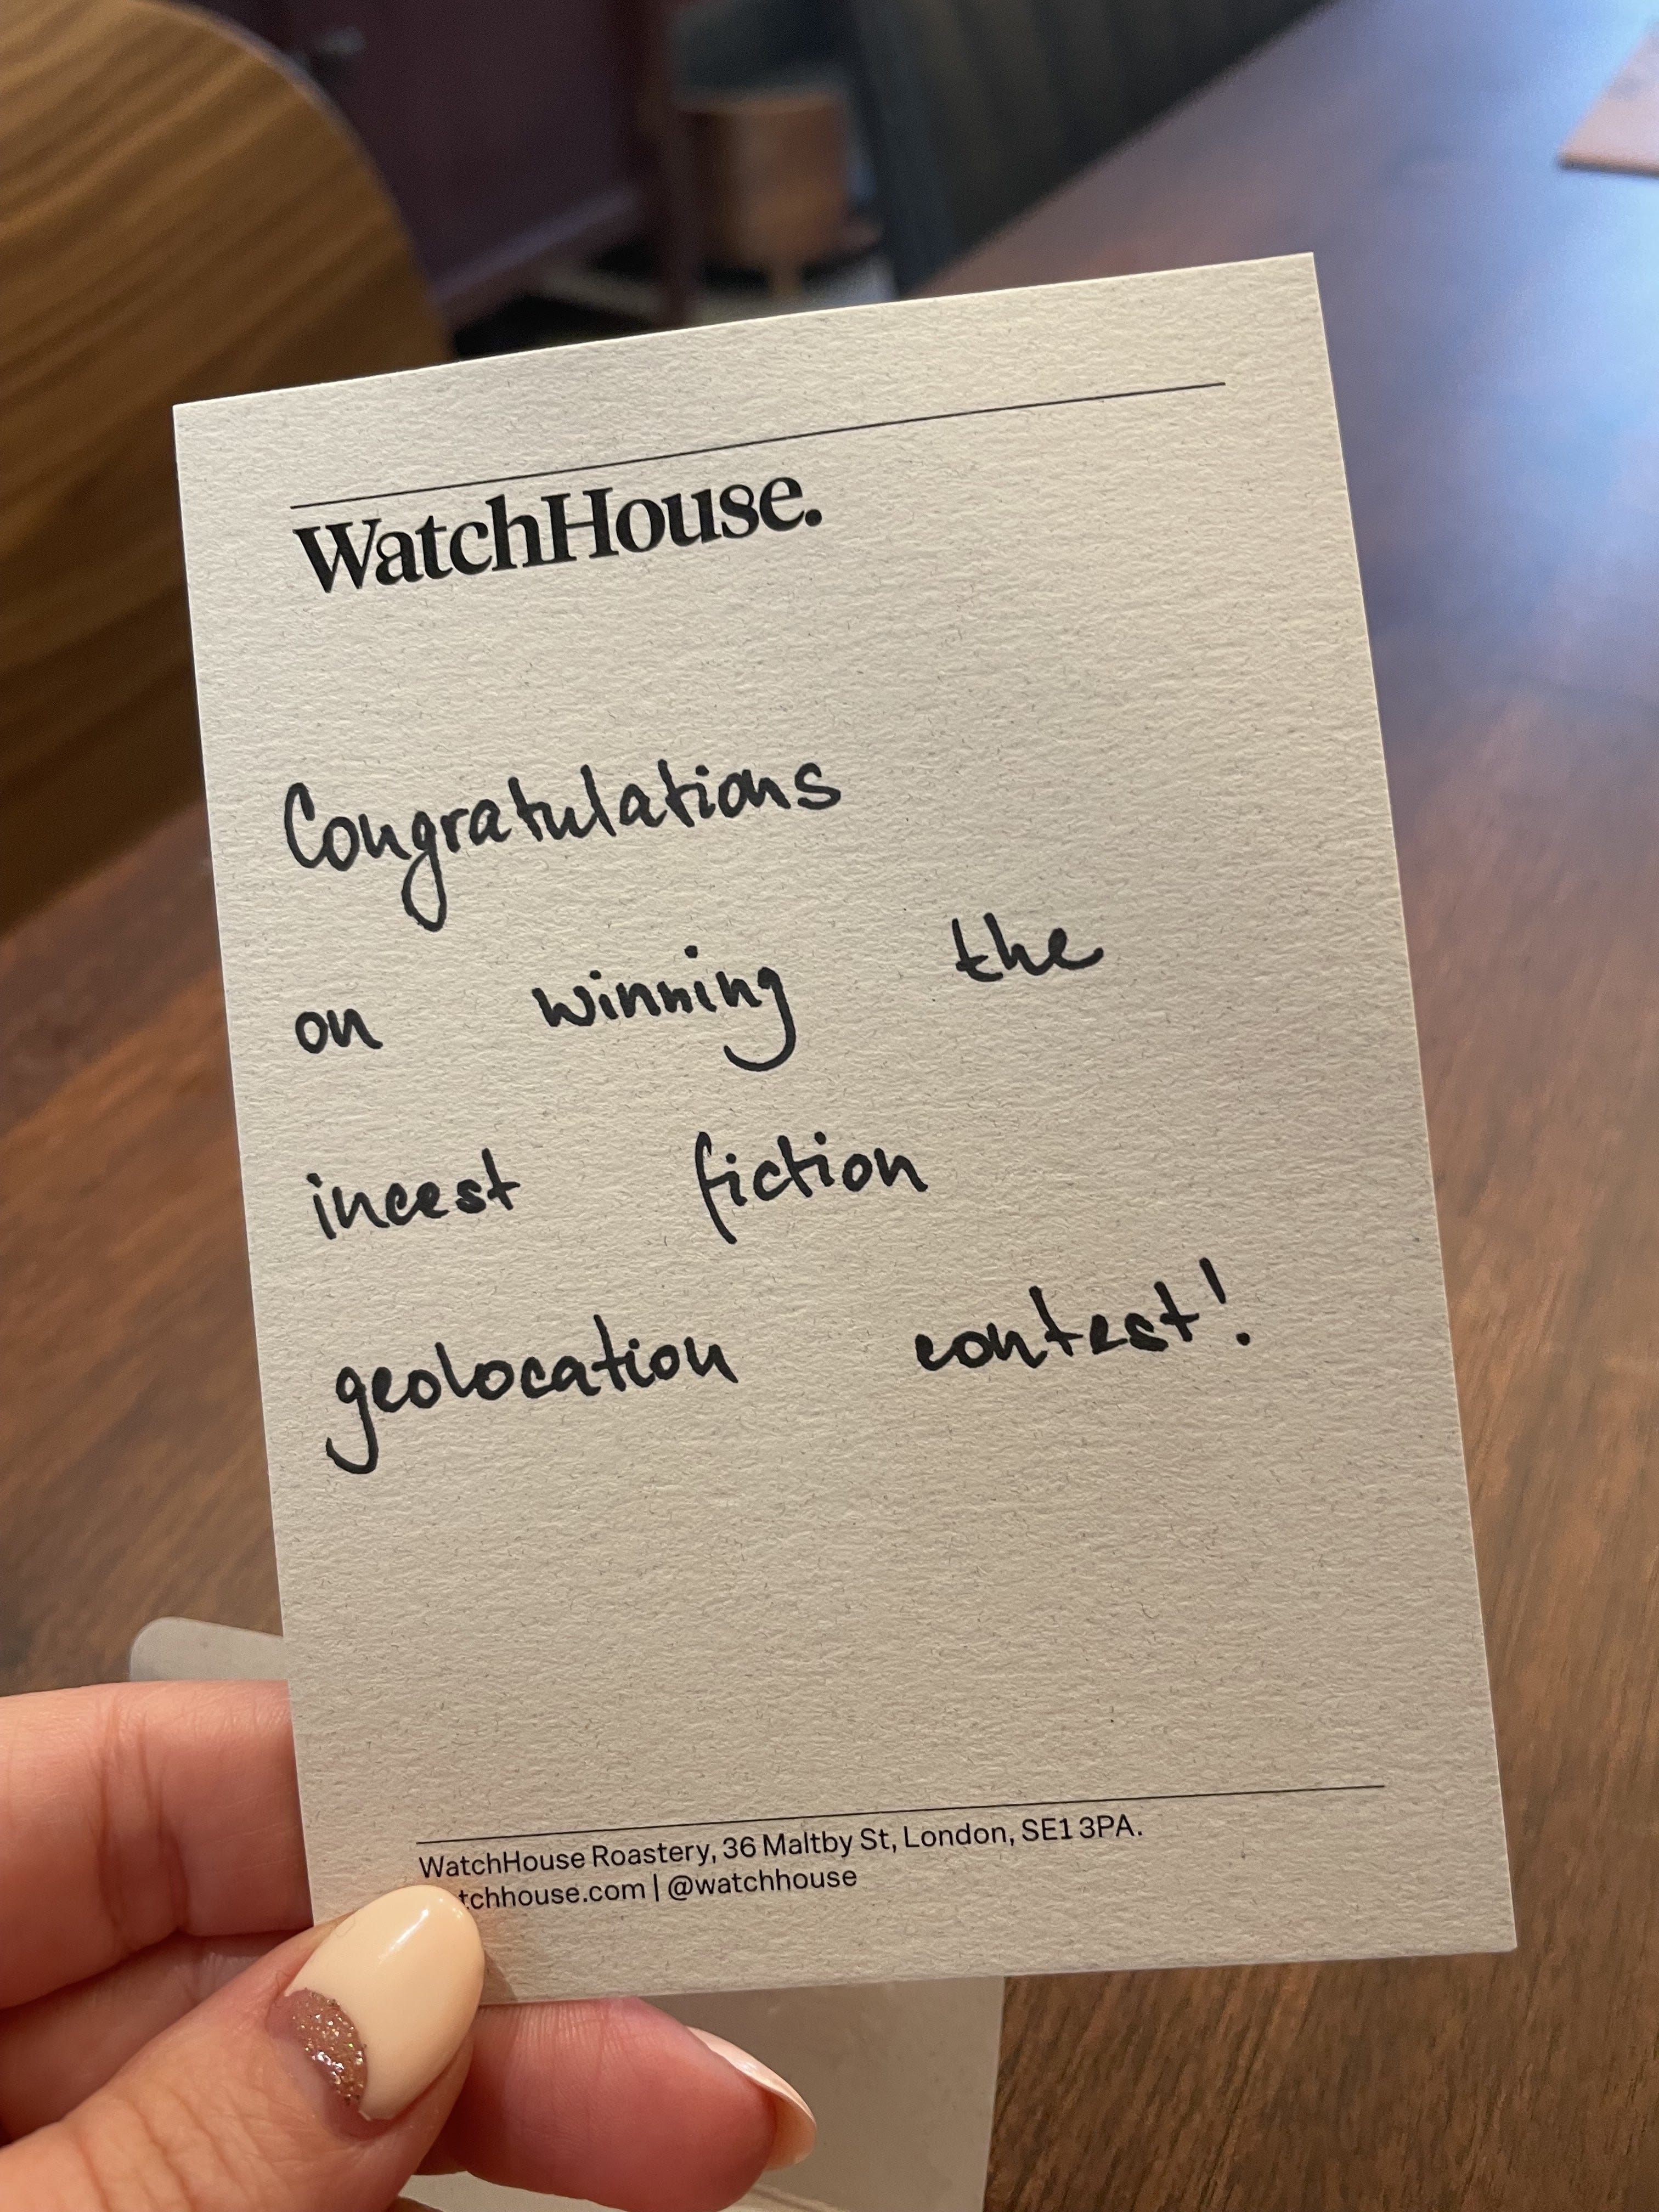 WatchHouse.
Congratulations
on winning the
incest fiction
geolocation contest!
WatchHouse Roastery, 36 Maltby St, London, SE1 3PA.
tchhouse.com | @watchhouse